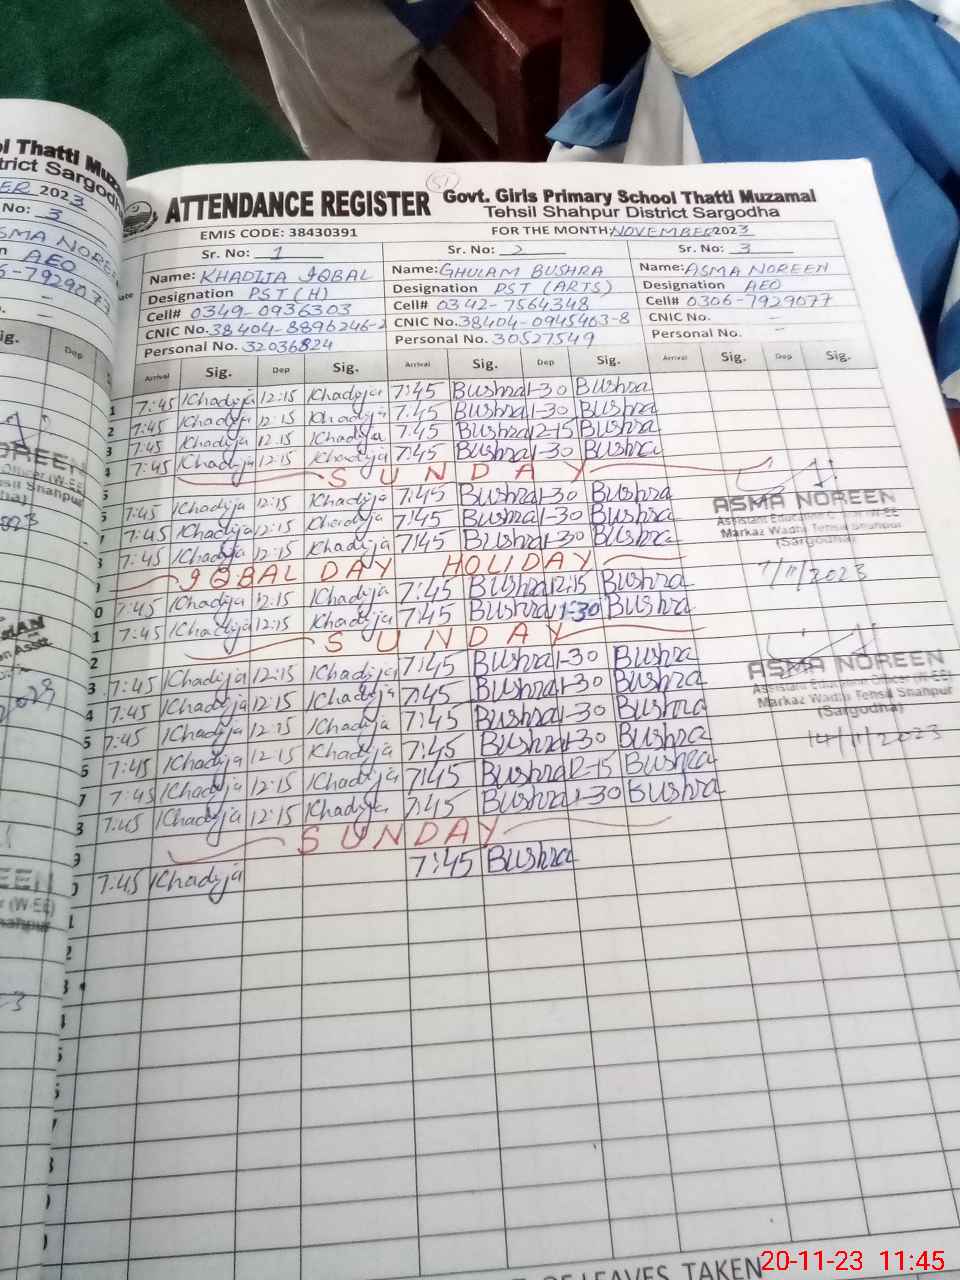 ol Thatti Muza
trict Sargod
ER 2023
No: 3
SMA NOREEN
AEO
6-7929077
51
ATTENDANCE REGISTER Govt. Girls Primary School Thatti Muzamal
Tehsil Shahpur District Sargodha
EMIS CODE: 38430391 FOR THE MONTH: NOVEMBER 2023
Sr. No: 1 Sr. No: 2 Sr. No: 3
Name: KHADIJA IQBAL Name: GHULAM BUSHRA Name: ASMA NOREEN
Designation PST (H) Designation PST (ARTS) Designation AEO
Cell# 0349-0936303 Cell# 0342-7564348 Cell# 0306-7929077
CNIC No. 38404-8896246-2 CNIC No. 38404-0945463-8 CNIC No. -
Personal No. 32036824 Personal No. 30527549 Personal No. -
Arrival Sig. Dep Sig. Arrival Sig. Dep Sig. Arrival Sig. Dep Sig.
1 7:45 Khadija 12:15 Khadija 7:45 Bushra 1-30 Bushra
2 7:45 Khadija 12:15 Khadija 7:45 Bushra 1-30 Bushra
3 7:45 Khadija 12:15 Khadija 7:45 Bushra 12-15 Bushra
4 7:45 Khadija 12:15 Khadija 7:45 Bushra 1-30 Bushra
SUNDAY
7:45 Khadija 12:15 Khadija 7:45 Bushra 1-30 Bushra
7:45 Khadija 12:15 Khadija 7:45 Bushra 1-30 Bushra
7:45 Khadija 12:15 Khadija 7:45 Bushra 1-30 Bushra
ASMA NOREEN
Markaz Wadhi Tehsil Shahpur
(Sargodha)
7/11/2023
IQBAL DAY HOLIDAY
7:45 Khadija 12:15 Khadija 7:45 Bushra 12:15 Bushra
7:45 Khadija 12:15 Khadija 7:45 Bushra 1-30 Bushra
SUNDAY
7:45 Khadija 12:15 Khadija 7:45 Bushra 1-30 Bushra
7:45 Khadija 12:15 Khadija 7:45 Bushra 1-30 Bushra
7:45 Khadija 12:15 Khadija 7:45 Bushra 1-30 Bushra
7:45 Khadija 12:15 Khadija 7:45 Bushra 1-30 Bushra
7:45 Khadija 12:15 Khadija 7:45 Bushra 12-15 Bushra
7:45 Khadija 12:15 Khadija 7:45 Bushra 1-30 Bushra
ASMA NOREEN
Assistant Education Officer (W-EE)
Markaz Wadhi Tehsil Shahpur
(Sargodha)
14/11/2023
SUNDAY
7:45 Khadija 7:45 Bushra
OF LEAVES TAKEN
20-11-23 11:45